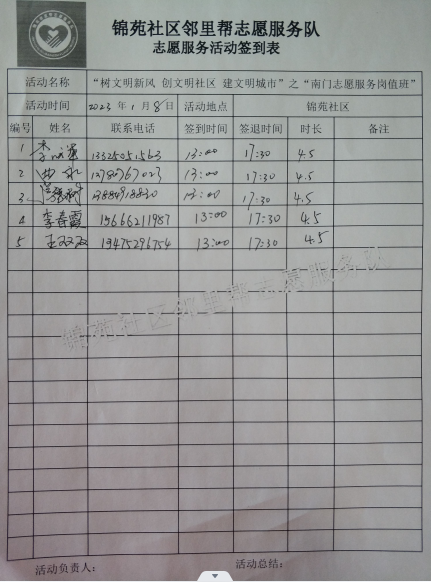 锦苑社区邻里帮志愿服务队
志愿服务活动签到表
活动名称 “树文明新风 创文明社区 建文明城市”之“南门志愿服务岗值班”
活动时间 2023 年 1 月 8 日 活动地点 锦苑社区
编号 姓名 联系电话 签到时间 签退时间 时长 备注
1 李 13325051563 13:00 17:30 4.5
2 13:00 17:30 4.5
3 13:00 17:30 4.5
4 李春霞 15666211987 13:00 17:30 4.5
5 王双双 15475296754 13:00 17:30 4.5
锦苑社区邻里帮志愿服务队
活动负责人： 活动总结：